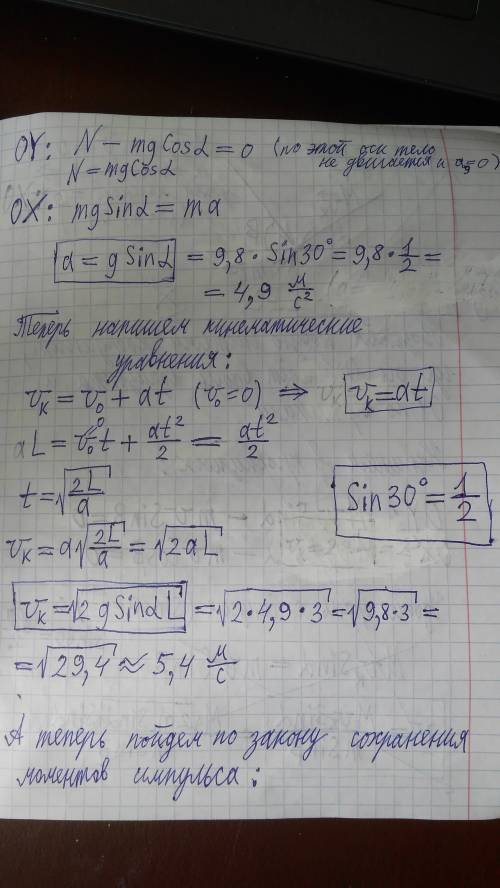 OY: N − mgCosα = 0 (по этой оси тело не двигается и a_y=0)
N = mgCosα
OX: mgSinα = ma
a = g Sinα = 9,8 · Sin30° = 9,8 · 1/2 =
= 4,9 м/с²
Теперь напишем кинематические
уравнения:
v_к = v_0 + at (v_0=0) ⇒ v_к = at
L = v_0t + at²/2 = at²/2
t = √(2L/a)
Sin30° = 1/2
v_к = a√(2L/a) = √(2aL)
v_к = √(2gSinαL) = √(2·4,9·3) = √(9,8·3) =
= √(29,4) ≈ 5,4 м/с
А теперь пойдем по закону сохранения
моментов импульса: